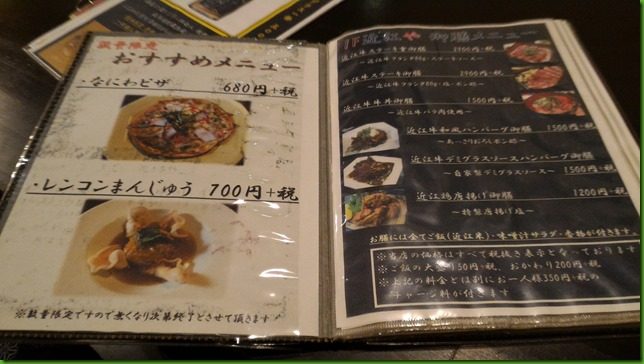 数量限定
おすすめメニュー
・なにわピザ 680円+税
・レンコンまんじゅう 700円+税
※数量限定ですので無くなり次第終了とさせて頂きます
近江や 御膳メニュー
近江牛ステーキ重御膳 2900円+税
近江牛ステーキ御膳 2900円+税
近江牛牛丼御膳 1500円+税
～近江牛バラ肉使用～
近江牛和風ハンバーグ御膳 1500円+税
～あっさりおろしポン酢～
近江牛デミグラスソースハンバーグ御膳
～自家製デミグラスソース～ 1500円+税
近江鶏唐揚げ御膳 1200円+税
～特製唐揚げ塩～
お膳には全てご飯(近江米)・味噌汁・サラダ・香物が付きます。
※当店の価格はすべて税抜き表示となっております
※ご飯の大盛り50円+税、おかわり200円+税
※上記の料金とは別にお一人様350円+税の
チャージ料が付きます